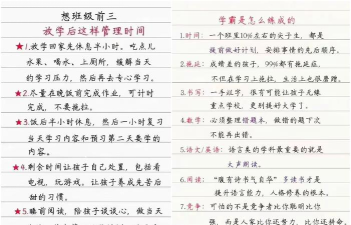 想班级前三
放学后这样管理时间
★1.放学回家先休息半小时。吃点儿
水果、喝水、上厕所,缓解当天
的学习压力,然后再去专心学习。
★2.尽量在晚饭前完成作业,可计时
完成,不要拖拉。
★3.饭后半小时休息,然后一小时复习
当天学习内容和预习第二天要学的
内容。
★4.剩余时间让孩子自己处置,包括看
电视,玩游戏,让孩子养成先苦后
甜的习惯。
★5.睡前阅读,陪孩子谈谈心,做当天
学霸是怎么练成的
1.时间:一个班里10%左右的尖子生,都是
提前做好计划,安排事情的先后顺序。
2.拖拉:成绩差的孩子,99%都有拖延症,
不但在学习上拖拉,生活上也很磨蹭。
3.书写:一手汉字,很有可能让孩子无缘
重点学校,更别提好大学了。
4.数学:必须整理错题本,做错的题下次
不能再出错。
5.语文/英语:语言类的学科最重要的就是
大声朗读。
6.阅读:“腹有诗书气自华”多读书才是
提升语言能力,人格修养的根本。
7.竞争:可怕的不是竞争者比你聪明比你
强,而是人家比你还努力,比你还拼命。